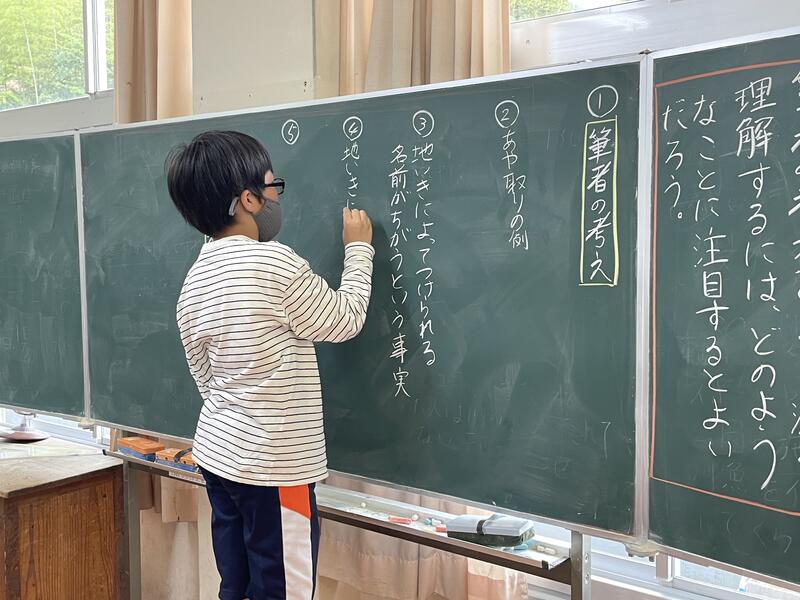 理解するには、どのよう
なことに注目するとよい
だろう。
①
筆者の考え
②
あや取りの例
③
地いきによってつけられる
名前がちがうという事実
④
地いきに
⑤